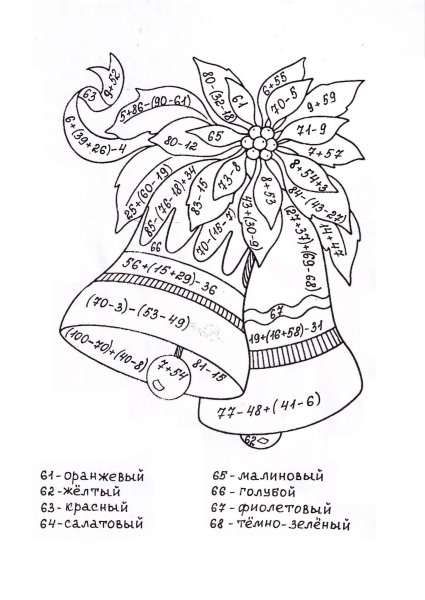 9+52
63
5+86-(90-61)
6+(39+26)-4
80-(32-18)
61
6+55
70-5
9+59
65
80-12
71-9
7+57
25+(60-19)
85-(76-18)+34
83-15
73-8
8+53
8+54+3
84-(43-27)
14+47
43+(30-9)
70-(15-7)
(27+37)+(69-68)
66
56+(15+29)-36
(70-3)-(53-49)
67
19+(16+58)-31
(100-70)+(40-8)
7+54
81-15
77-48+(41-6)
62
61-оранжевый
62-жёлтый
63-красный
64-салатовый
65-малиновый
66-голубой
67-фиолетовый
68-тёмно-зелёный